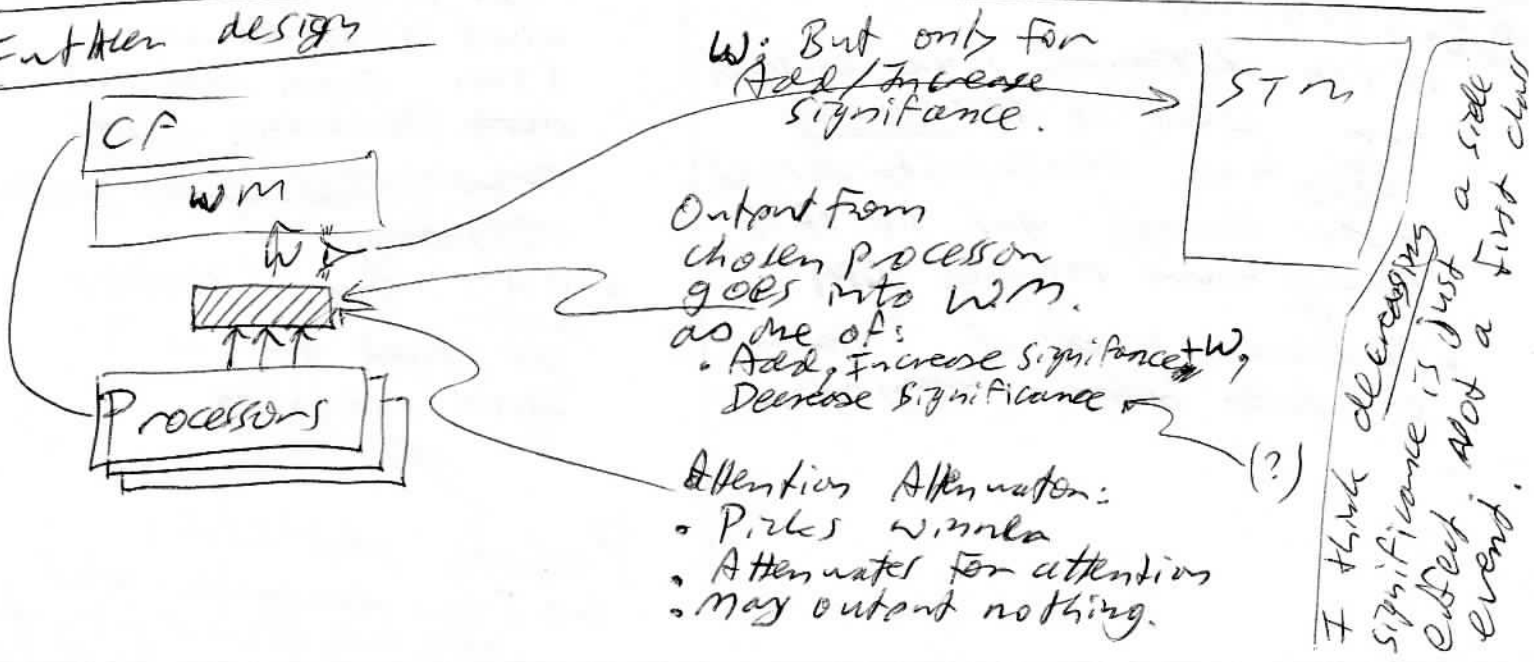 Further design
CF
WM
W
Processors
W: But only for
Add/Increase
signifance.
STM
Output from
chosen processor
goes into WM.
as one of:
• Add, Increase signifance +W,
Decrease Significance
(?)
Attention Attenuator:
• Picks winner
• Attenuates for attention
• May output nothing.
I think decreasing
significance is just a side
effect not a first class
event.